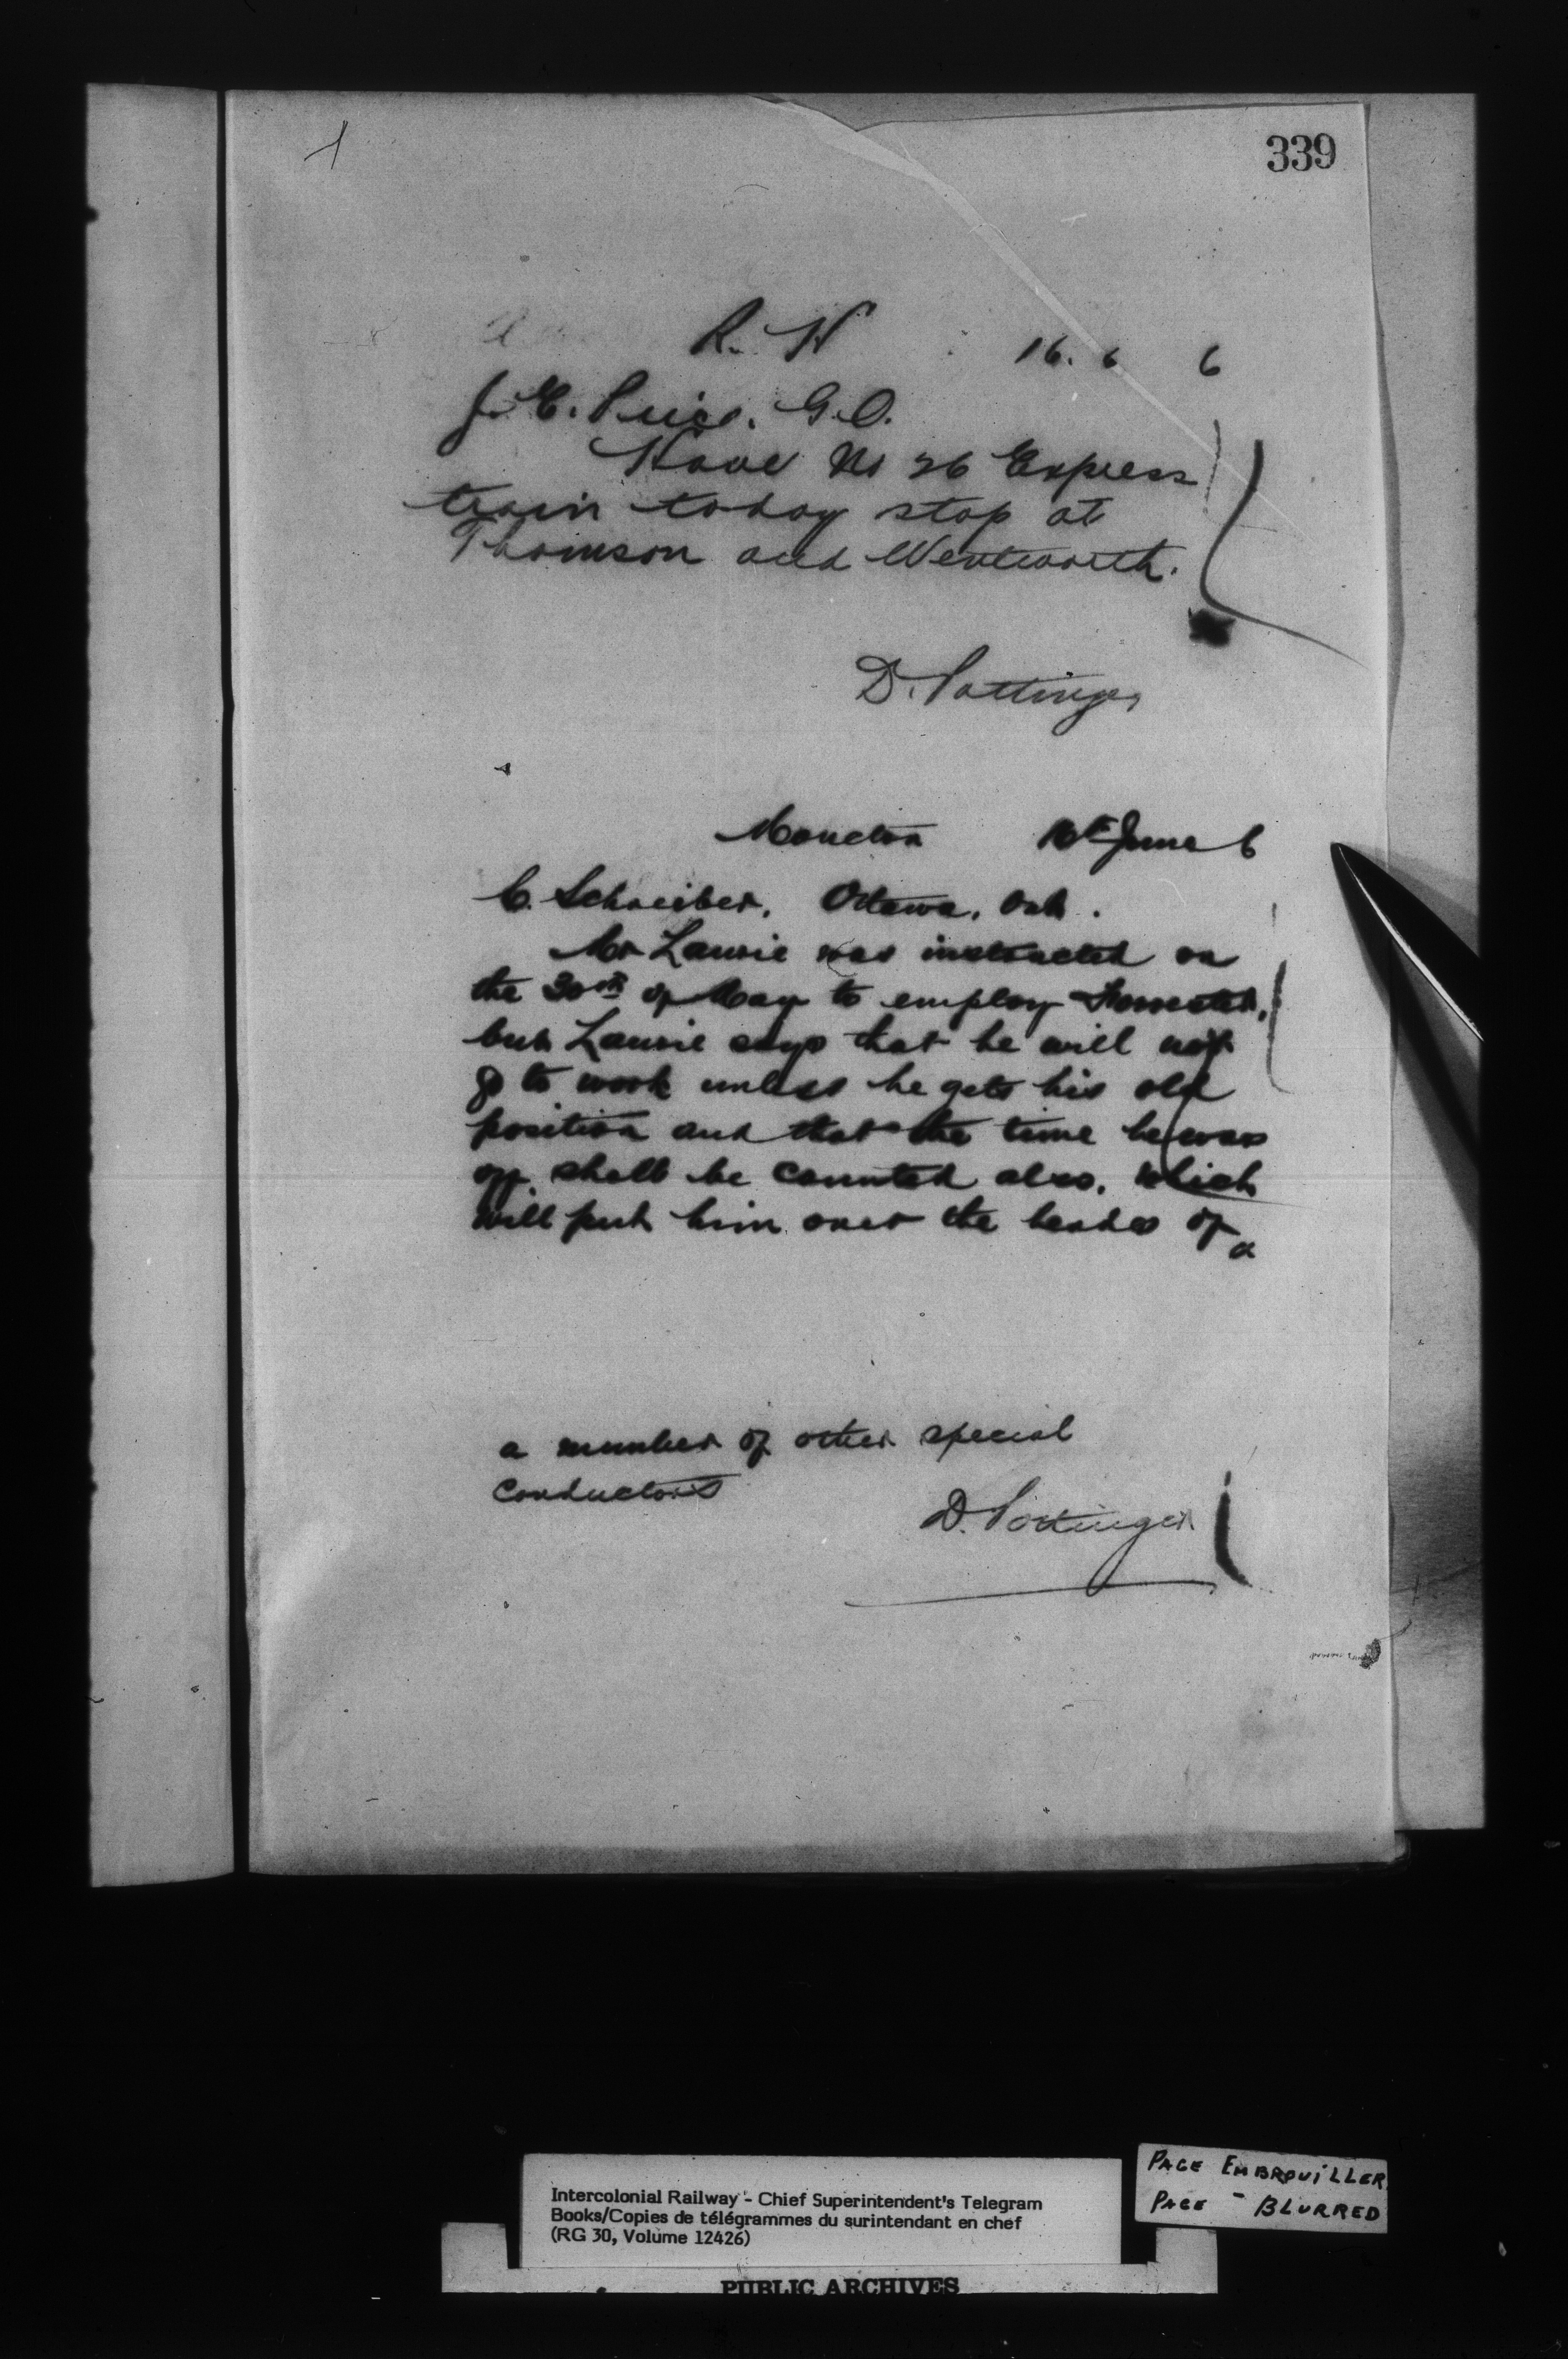 339
R. W 16. 6 6
J. E. Price. G.O.
Have No 26 Express
train today stop at
Thomson and Wentworth.
D. Pottinger
Moncton 16th June 6
C. Schreiber, Ottawa, Ont.
Mr Laurie was instructed on
the 30th of May to employ
but Laurie says that he will not
go to work unless he gets his old
position and that the time he was
off shall be counted also, which
will put him over the heads of a
a number of other special
conductors
D. Pottinger
PAGE EMBROUILLER
PAGE - BLURRED
Intercolonial Railway - Chief Superintendent's Telegram
Books/Copies de télégrammes du surintendant en chef
(RG 30, Volume 12426)
PUBLIC ARCHIVES